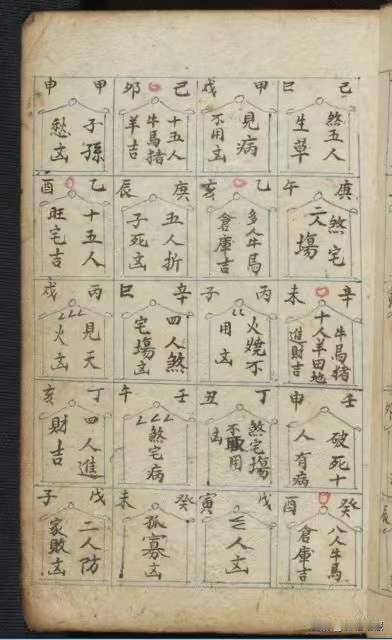 己巳
煞五人
生草
庚午
煞宅
二人塲
辛未
牛馬猪
十人羊田地
進財吉
壬申
破死十
人有病
癸酉
八人牛馬
倉庫吉
甲戌
見病
不用㐫
乙亥
多人牛馬
倉庫吉
丙子
火燒不
用㐫
丁丑
煞宅塲
不取用
㐫
戊寅
三人㐫
己卯
十五人
牛馬猪
羊吉
庚辰
五人折
子死㐫
辛巳
四人煞
宅塲㐫
壬午
煞宅病
癸未
孤寡㐫
甲申
子孫
愁㐫
乙酉
十五人
旺宅吉
丙戌
見天
火㐫
丁亥
四人進
財吉
戊子
二人防
家敗㐫